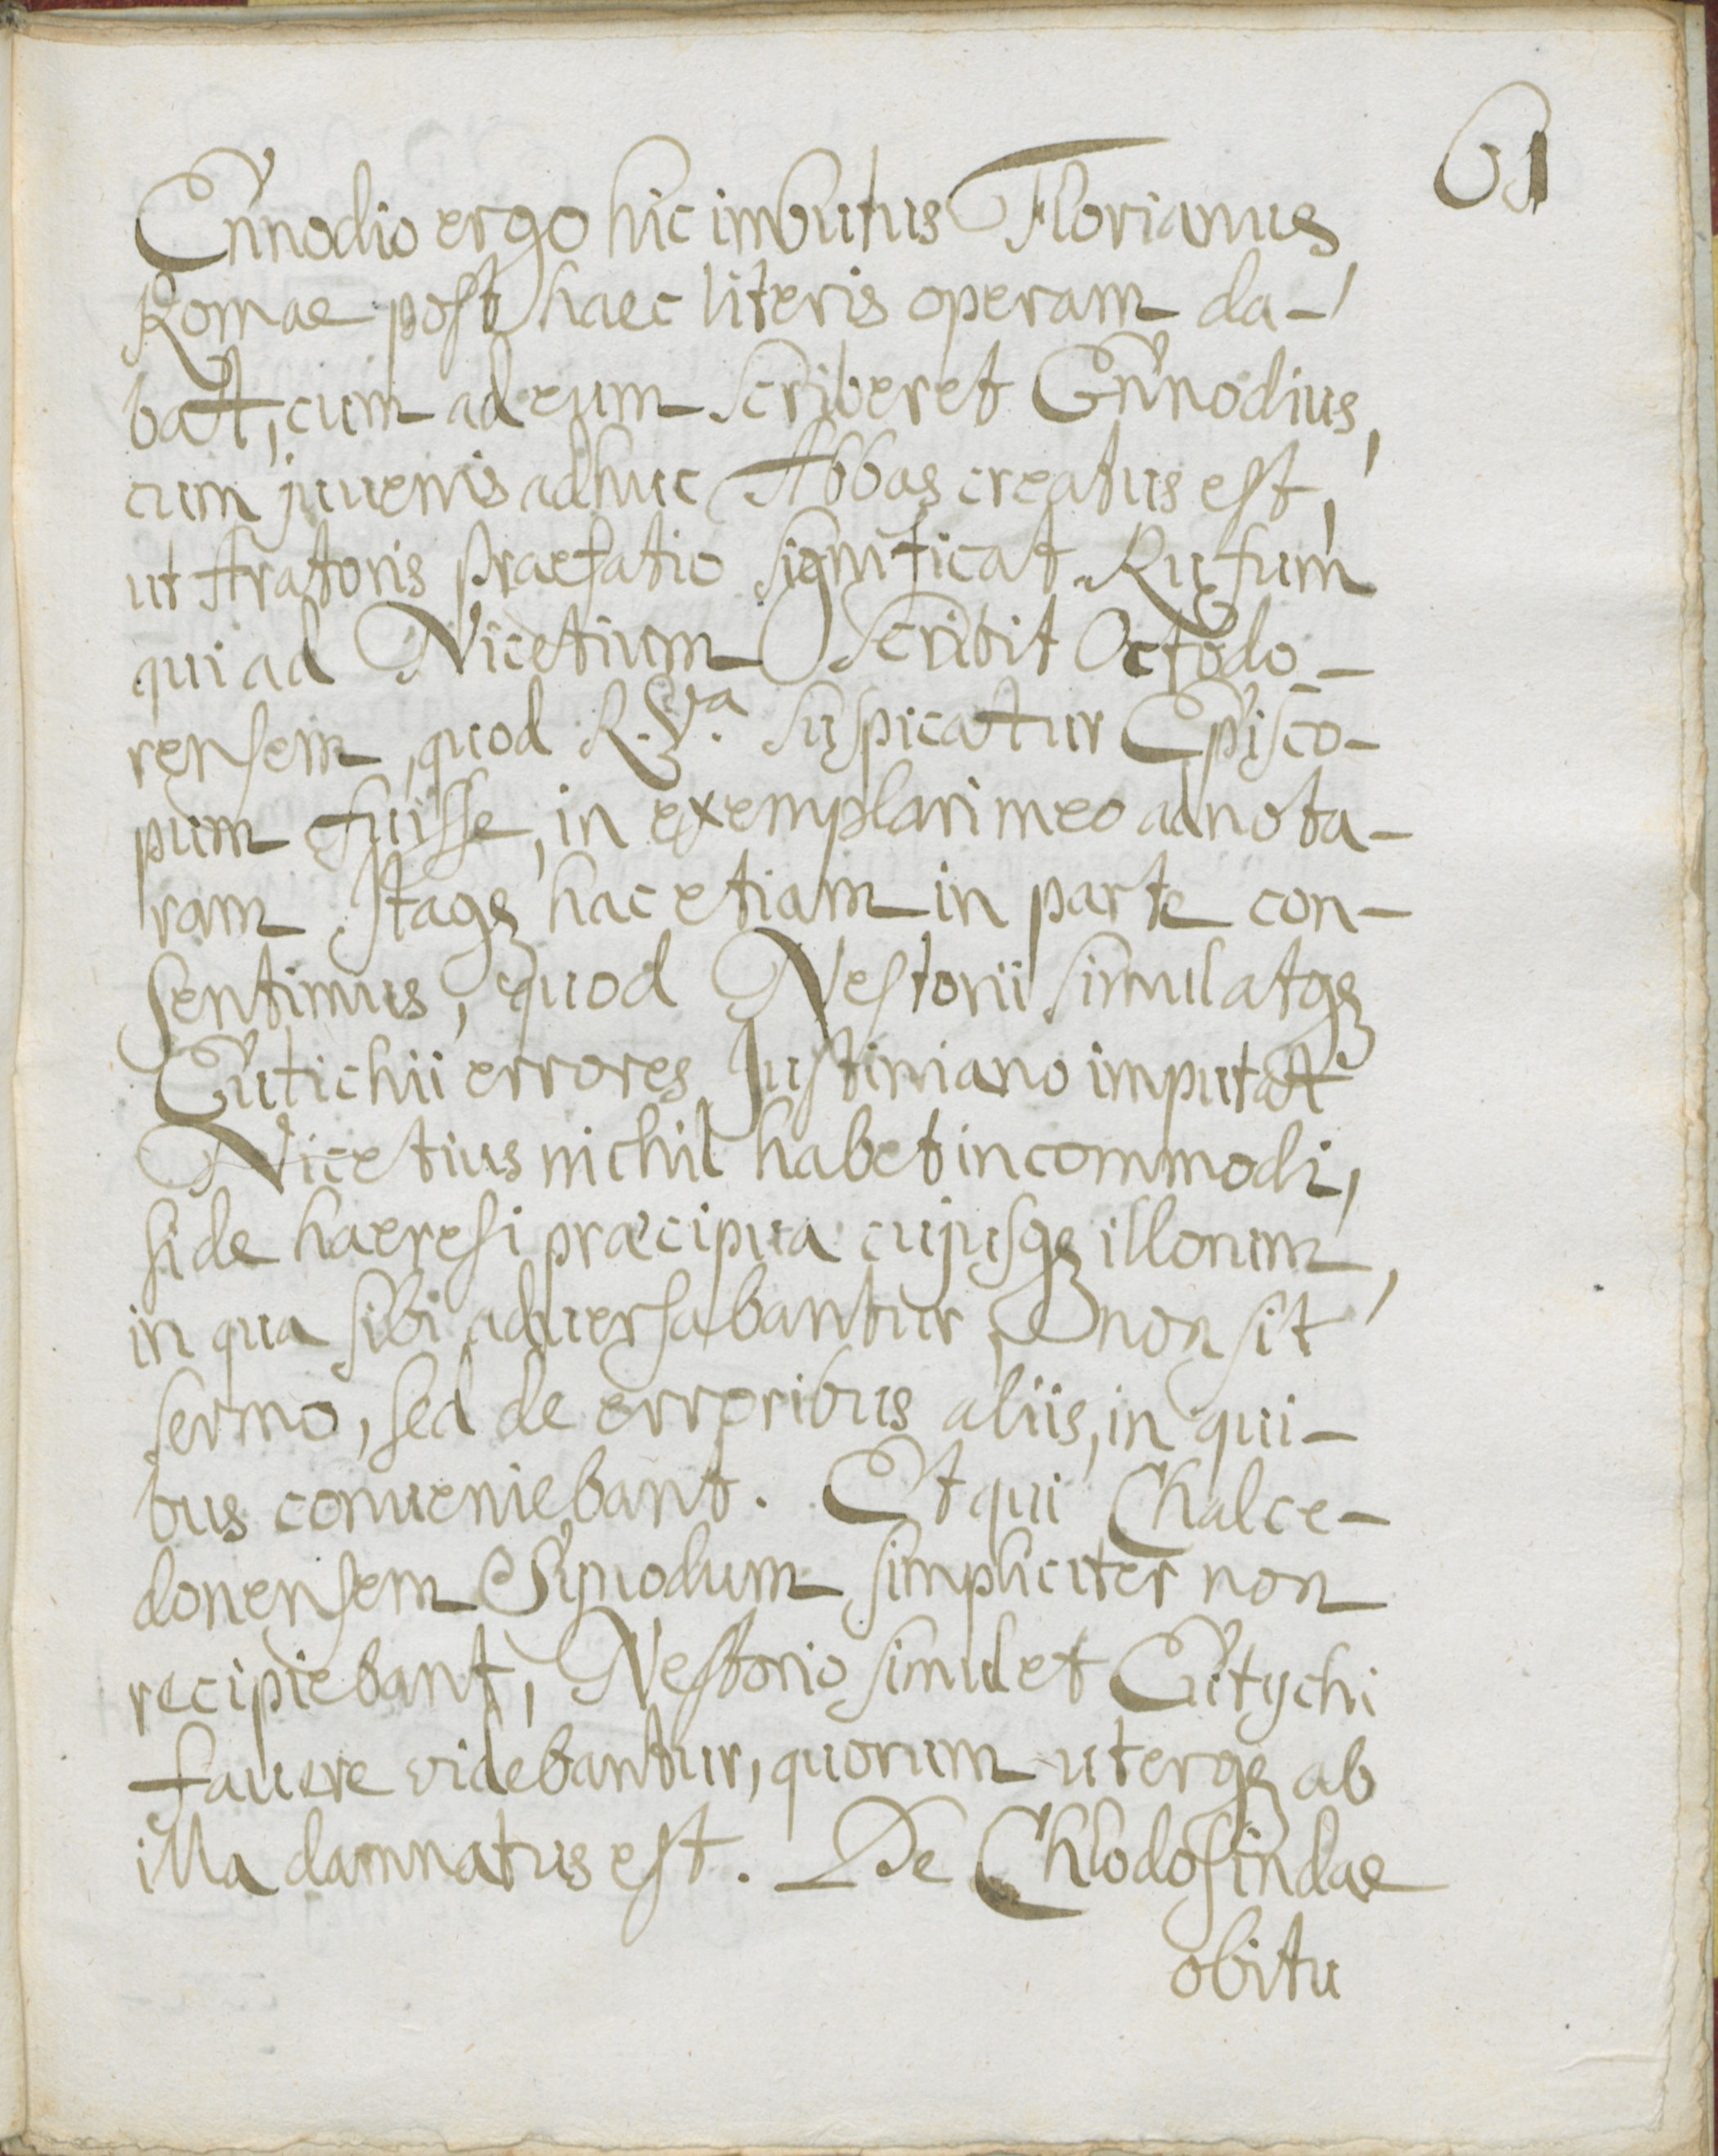 61
Ennodio ergo hic imbutus Florianus,
Romae post haec literis operam da-
bat, cum ad eum scriberet Ennodius,
cum juuenis adhuc Abbas creatus est,
ut Aratoris praefatio significat. Rufum
qui ad Nicetium scribit Octodo-
rensem, quod R. Vª. suspicatur Episco-
pum fuisse, in exemplari meo adnota-
ram. Itaqꝫ hac etiam in parte con-
sentimus, quod Nestorii simul atqꝫ
Eutichii errores Justiniano imputat
Nicetius nichil habet incommodi,
si de haeresi praecipua cujusqꝫ illorum,
in qua sibi aduersabantur, non sit
sermo, sed de erroribus aliis, in qui-
bus conueniebant. Et qui Chalce-
donensem Synodum simpliciter non
recipiebant, Nestorio simul et Eutychi
fauere videbantur, quorum uterqꝫ ab
illa damnatus est. De Chlodosindae
obitu